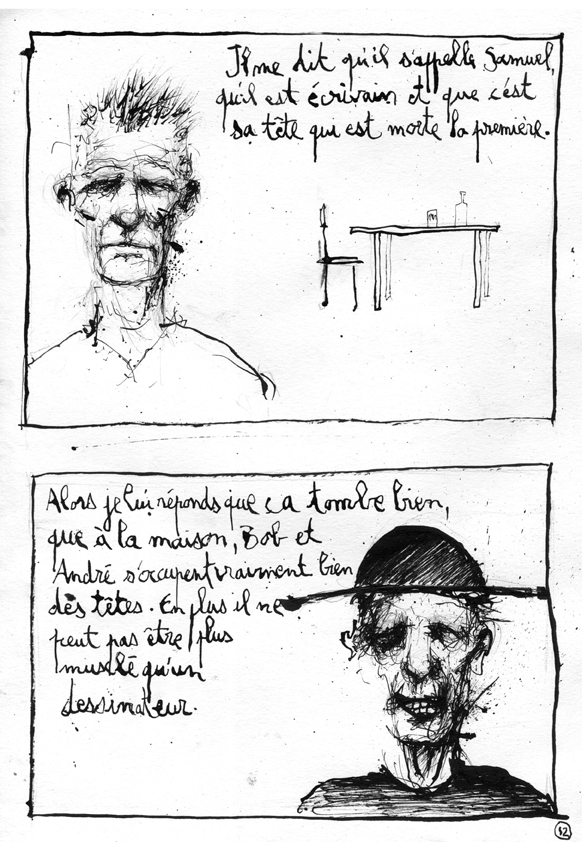 Il me dit qu'il s'appelle Samuel,
qu'il est écrivain et que c'est
sa tête qui est morte la première.
Alors je lui réponds que ça tombe bien,
que à la maison, Bob et
André s'occupent vraiment bien
des têtes. En plus il ne
peut pas être plus
musclé qu'un
dessinateur.
12